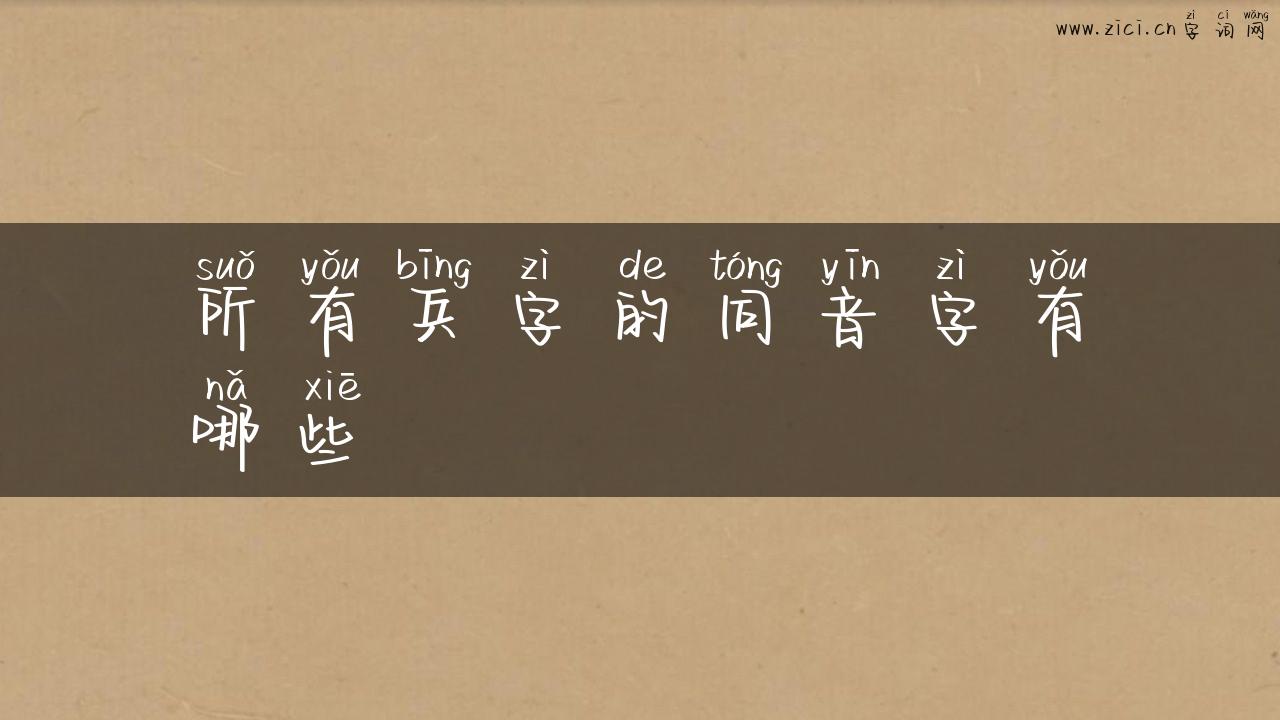 zì cí wǎng
www.zici.cn 字词网
suǒ yǒu bīng zì de tóng yīn zì yǒu
所有兵字的同音字有
nǎ xiē
哪些